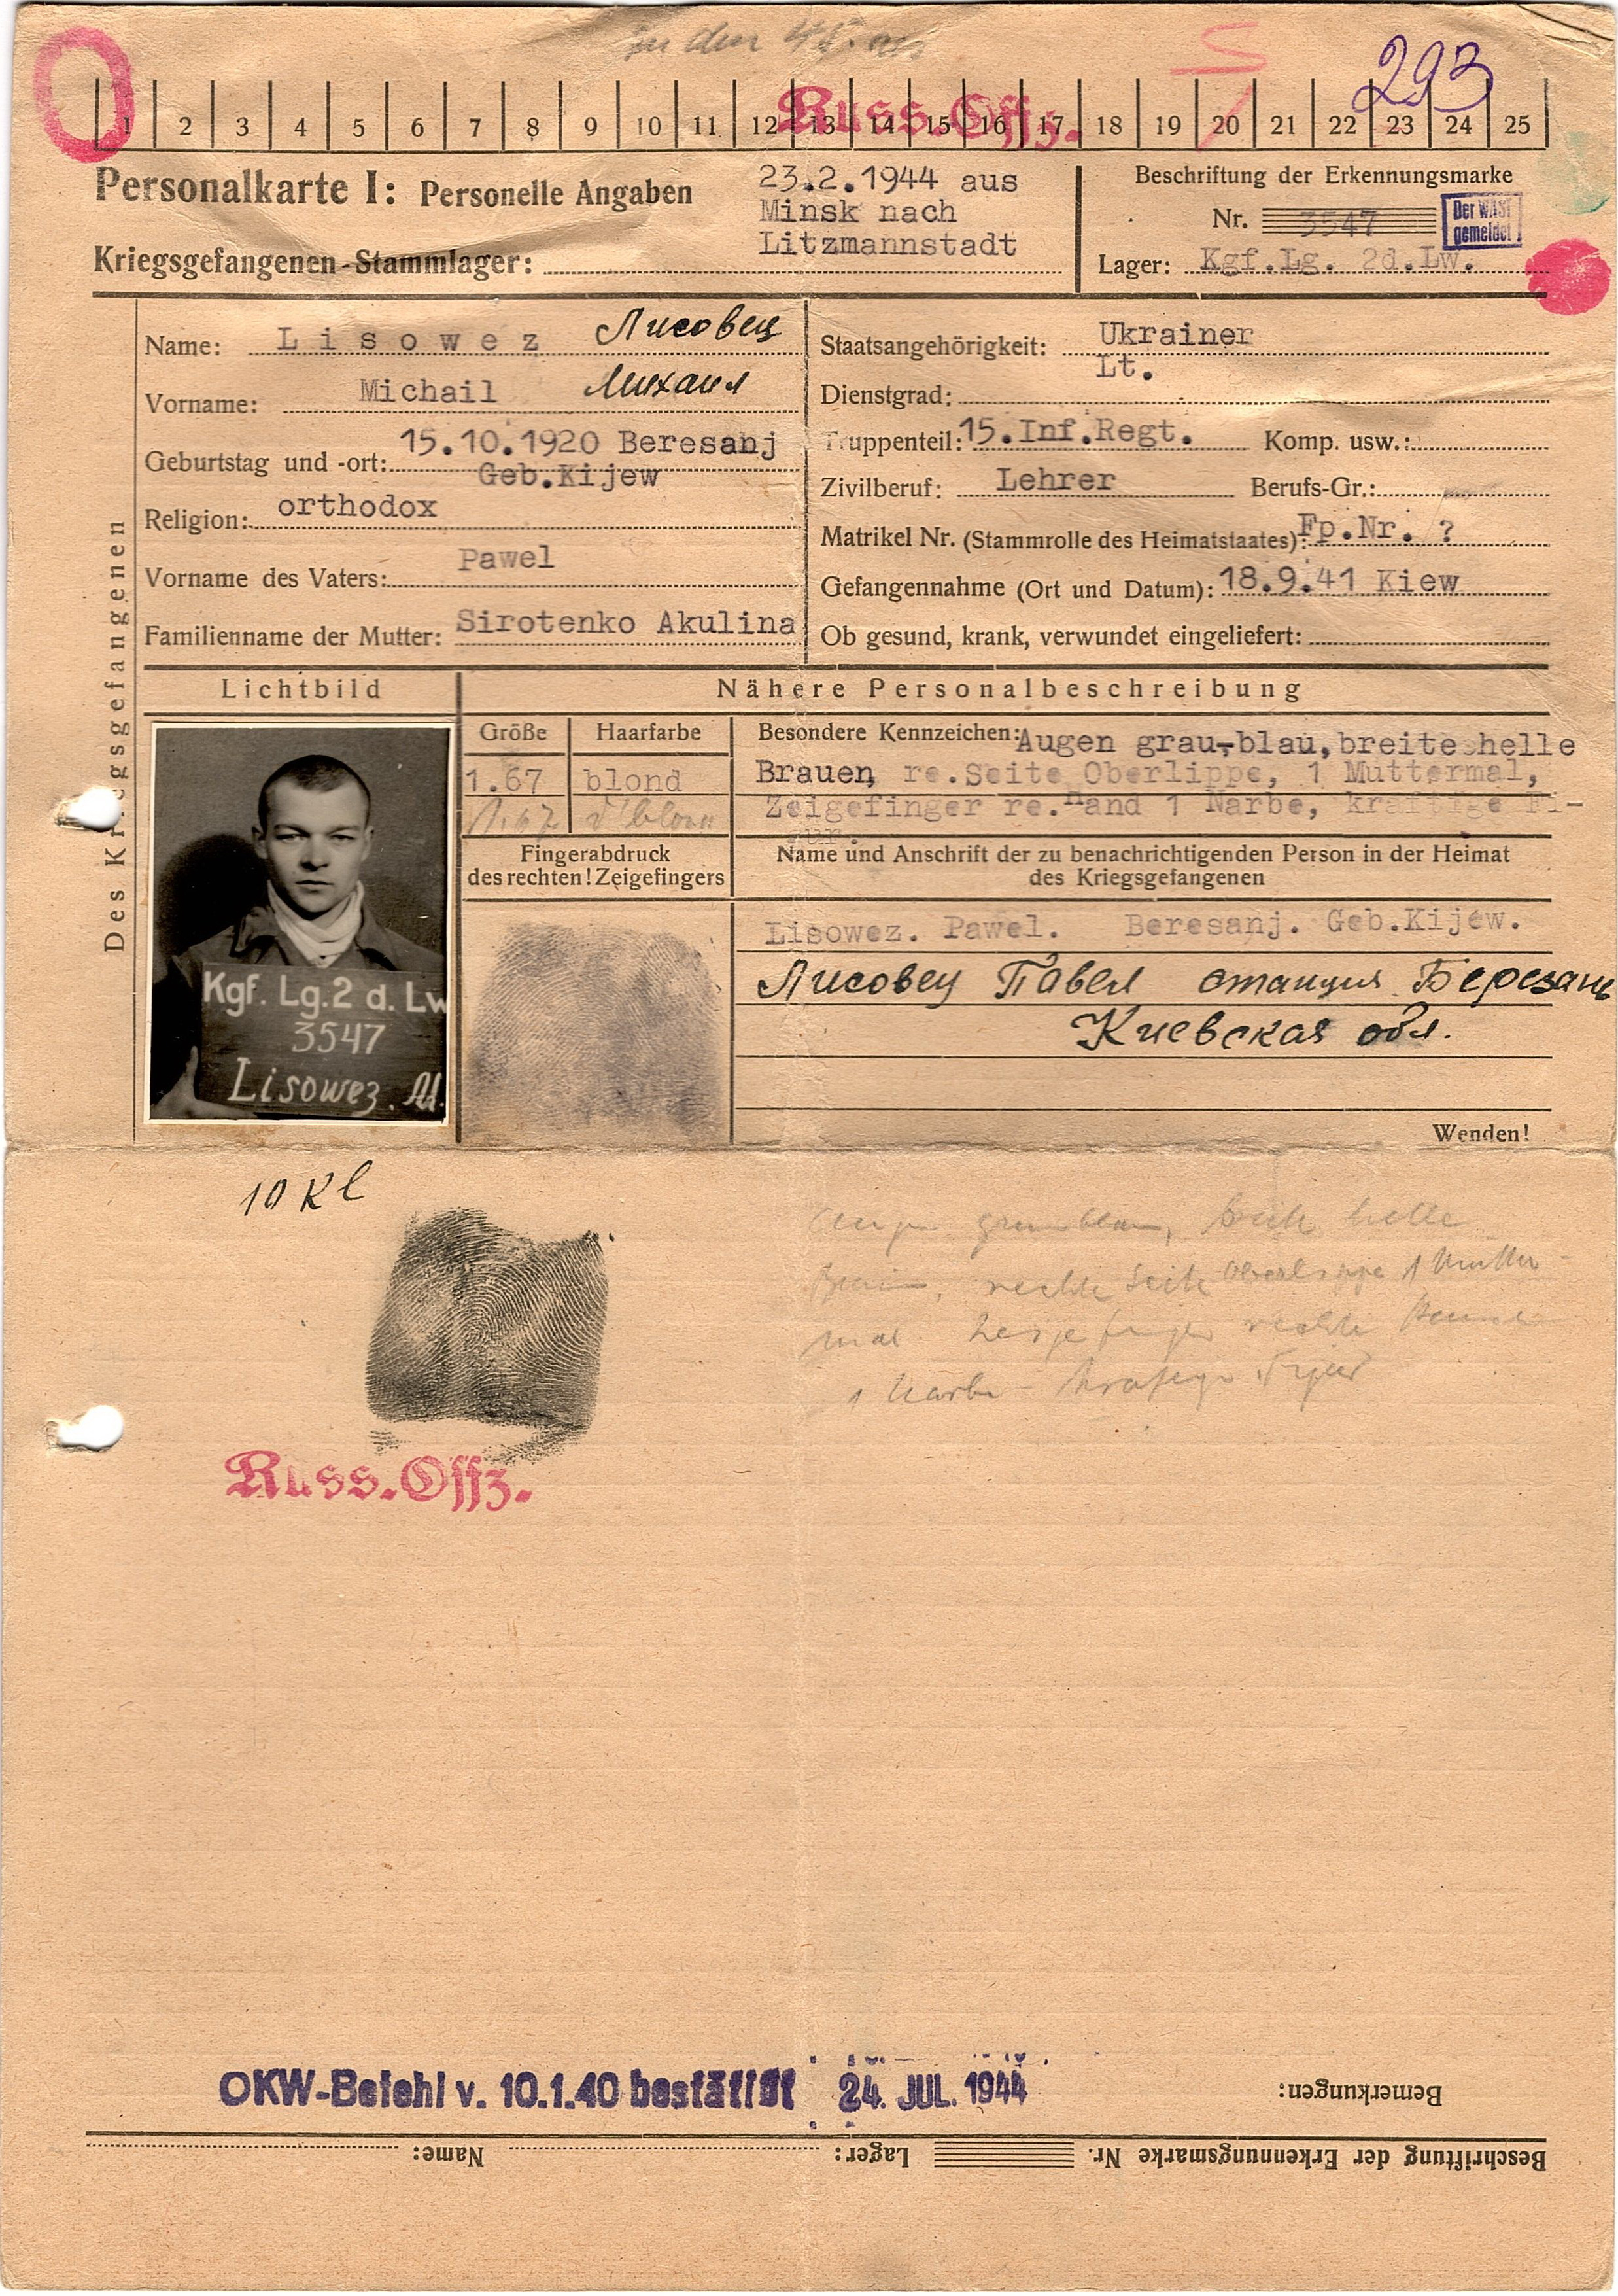 in den
Russ. Offz.
293
1 2 3 4 5 6 7 8 9 10 11 12 13 14 15 16 17 18 19 20 21 22 23 24 25
Personalkarte I: Personelle Angaben
23.2.1944 aus
Minsk nach
Litzmannstadt
Kriegsgefangenen-Stammlager:
Beschriftung der Erkennungsmarke
Nr. 3547
Der WASt
gemeldet
Lager: Kgf.Lg. 2d.Lw.
Des Kriegsgefangenen
Name: Lisowez Лисовец
Vorname: Michail Михаил
Geburtstag und -ort: 15.10.1920 Beresanj
Geb.Kijew
Religion: orthodox
Vorname des Vaters: Pawel
Familienname der Mutter: Sirotenko Akulina
Staatsangehörigkeit: Ukrainer
Dienstgrad: Lt.
Truppenteil: 15.Inf.Regt. Komp. usw.:
Zivilberuf: Lehrer Berufs-Gr.:
Matrikel Nr. (Stammrolle des Heimatstaates): Fp.Nr. ?
Gefangennahme (Ort und Datum): 18.9.41 Kiew
Ob gesund, krank, verwundet eingeliefert:
Lichtbild
Nähere Personalbeschreibung
Größe Haarfarbe
1.67 blond
1.67 d'blond
Besondere Kennzeichen: Augen grau-blau, breite helle
Brauen, re.Seite Oberlippe, 1 Muttermal,
Zeigefinger re.Hand 1 Narbe, kräftige Fi-
gur.
Fingerabdruck
des rechten! Zeigefingers
Name und Anschrift der zu benachrichtigenden Person in der Heimat
des Kriegsgefangenen
Lisowez. Pawel. Beresanj. Geb.Kijew.
Лисовец Павел станция Березань
Киевская обл.
Wenden!
Kgf. Lg.2 d. Lw
3547
Lisowez. M.
10 Kl
Augen graublau, breite helle
rechte Seite Oberlippe 1 Mutter-
mal. Zeigefinger rechte Hand
1 Narbe - kräftige Figur
Russ. Offz.
OKW-Befehl v. 10.1.40 bestätigt 24. JUL. 1944
Bemerkungen:
Beschriftung der Erkennungsmarke Nr. Lager: Name: